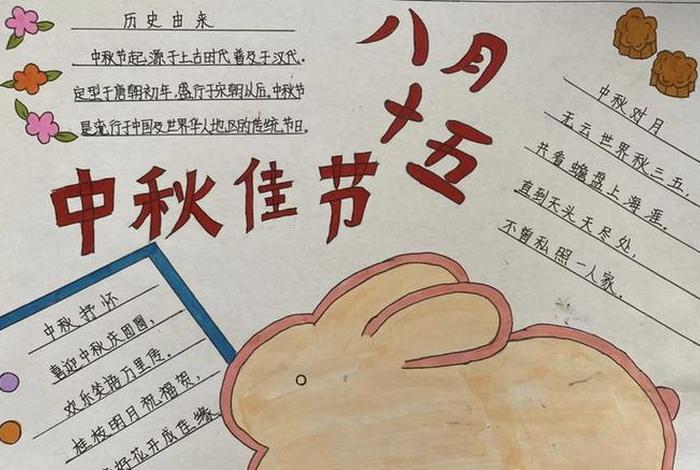 历史由来
中秋节起源于上古时代,普及于汉代。
定型于唐朝初年,盛行于宋朝以后。中秋节
是流行于中国及世界华人地区的传统节日。
八月
十五
中秋佳节
中秋对月
无云世界秋三五,
共看蟾盘上海涯。
直到天头天尽处,
不曾私照一人家。
中秋抒怀
喜迎中秋庆团圆,
欢乐笑语万里传。
桂枝明月祝福贺,
好花开成佳